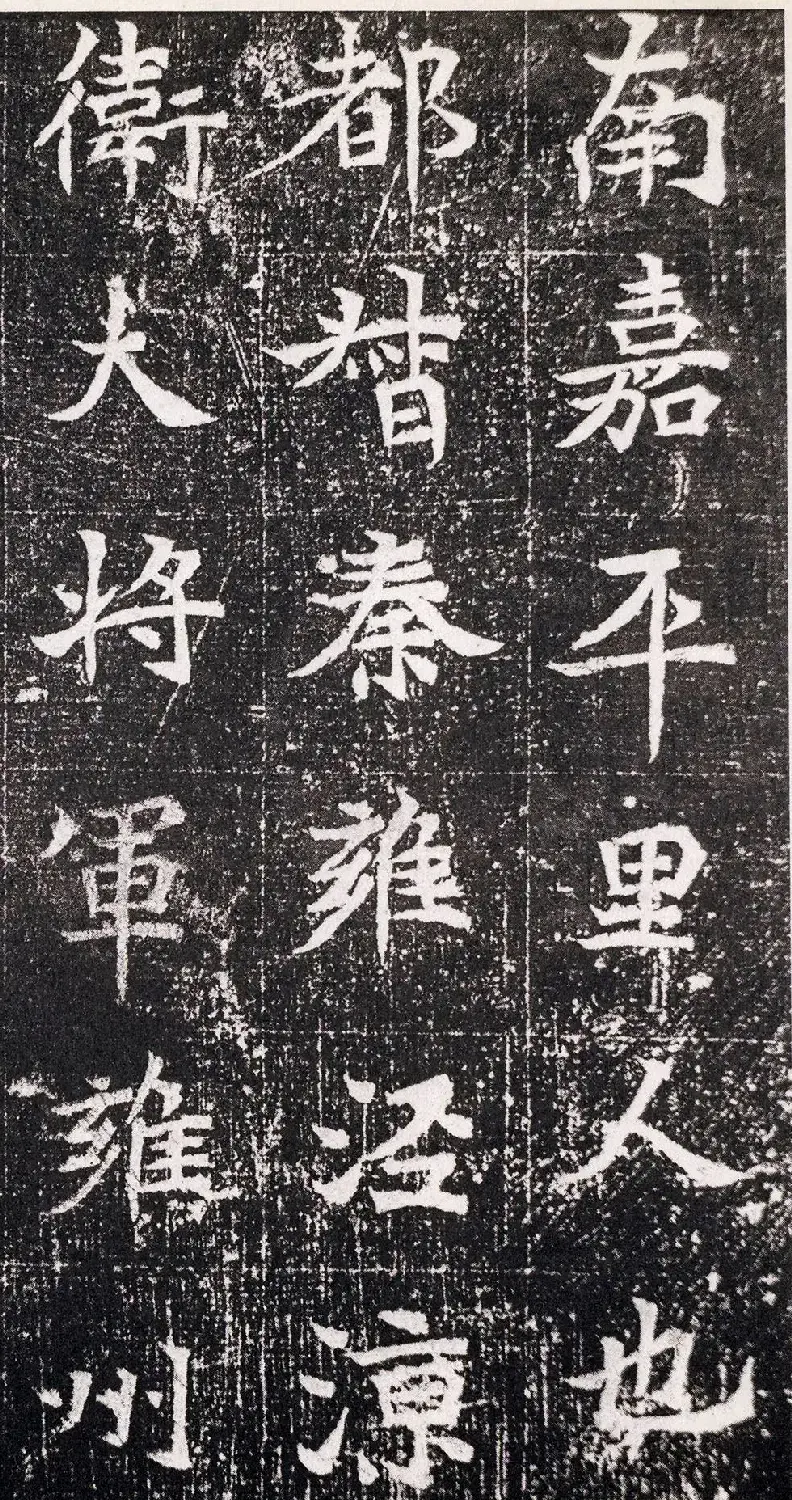 南嘉平里人也
都督秦雍涇涼
衛大将軍雍州